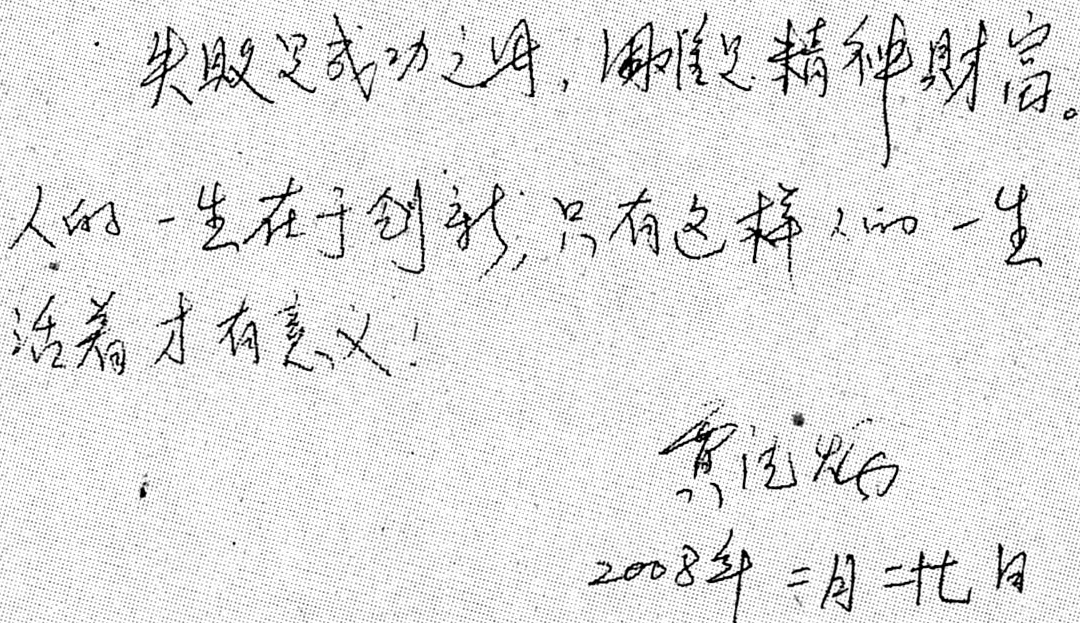 失败是成功之母,困难是精神财富。
人的一生在于创新,只有这样人的一生
活着才有意义!
2008年二月二十七日